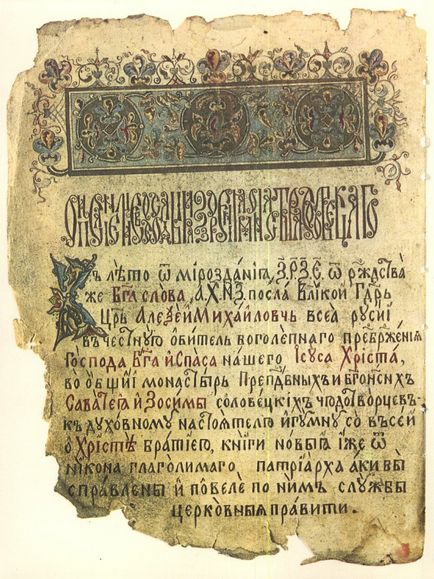 Въ лѣто ѿ мірозданіѧ, ҂ЗРѮЄ, ѿ рж҃дства
же Бг҃а слова, ҂А.Х.Н.З. посла вл҃икой гд҃рь
цр҃ь Алеѯей Михайловчь всеѧ русіи
въ честную обитель боголепнаго преѡбрж҃енія
Господа Бг҃а и Спаса нашего Ісуса Хріста,
во общій монастырь Преп҃дбныхъ и бг҃оноснхъ
Саватега и Зосимы соловецкіхъ чюдотворцевъ
къ духовному настоѧтелю игумну со всей
о Христѣ братіею, книги новыѧ іже ѿ
никона глаголимаго патріарха аки бы
справлены и повеле по нимъ службы
церковныѧ правити.